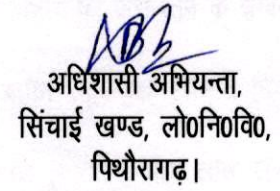 अधिशासी अभियन्ता,
सिंचाई खण्ड, लो0नि0वि0,
पिथौरागढ़।